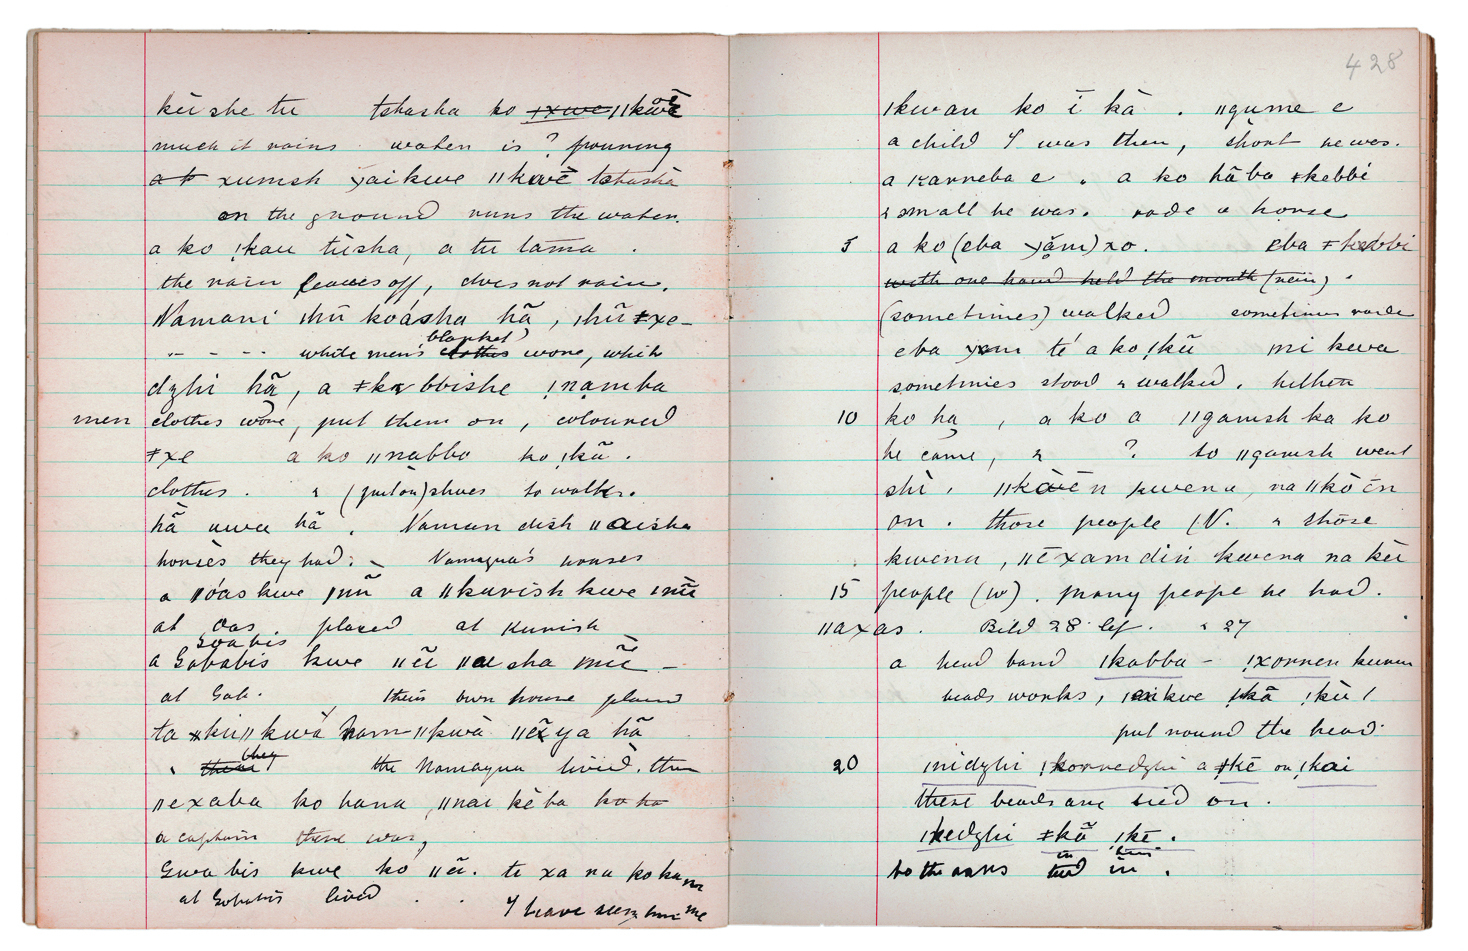 kúi she tu tshasha ko ǂxwe ǁkwẽ
much it rains water is ? pouring
xumsh ɣaikwe ǁkwẽ tshasha
on the ground runs the water.
a ko ǃkau túsha, a tu tama .
the rain leaves off, does not rain.
Namani ǀhũ koásha hã, ǀhũ ǂxe-
" - - - white men's clothes blanket wore, which
dzhi hã, a ǂkabbishe ǃnamba
men clothes wore, put them on, coloured
ǂxe a ko ǁnabba ko ǃkã.
clothes. & shoes to walk.
hã uwa hã. Naman dish ǁaisha
horses they had. Namaqua's houses
a ǁóás kwe ǀnũ a ǁkurish kwe ǀnũ
at Oas placed at Kurish
Goabis
a Gobabis kwe ǁẽi ǁaisha mũ -
at Gob. their own house placed
ta kwà ham ǁkwà ǁẽ ya hã
they the Namaqua lived. then
ǁexaba ko hana, ǁnai kèba ko ha
a captain there was,
Gwabis kwe kó ǁẽ. te xa na ko ka mu
at Gobabis lived . . I have seen him me
428
ǀkwan ko ĩ kà . ǁgume e
a child I was then, short he was.
a karreba e . a ko hãba ǂkebbi
& small he was. rode a horse
5 a ko (eba ɣãm) xo. eba ǂhabbi
with one hand held the mouth (rein) .
(sometimes) walked sometimes rode
eba ɣam té a ko ǃkũ mi kwa
sometimes stood & walked. hither
10 ko ha , a ko a ǁgamsh ka ko
he came, & ? to ǁgamsh went
shi , ǁkoẽn kwena, na ǁkò ẽn
on . those people (N. & those
kwena, ǁẽxam din kwena na kèi
15 people (w) . many peope he had.
ǁaxas. Bild 28 lef. & 27
a head band ǀkabba - ǃxorren kurun
beads works, ǀaikwe ǂkã ǃkù ǀ
put round the head.
20 ǀnidzhi ǃkorredzhi a ǂkẽ ou ǃkai
these beads are tied on.
ǀkedzhi ǂkã ǃkẽ.
in him
to the ears tied in .